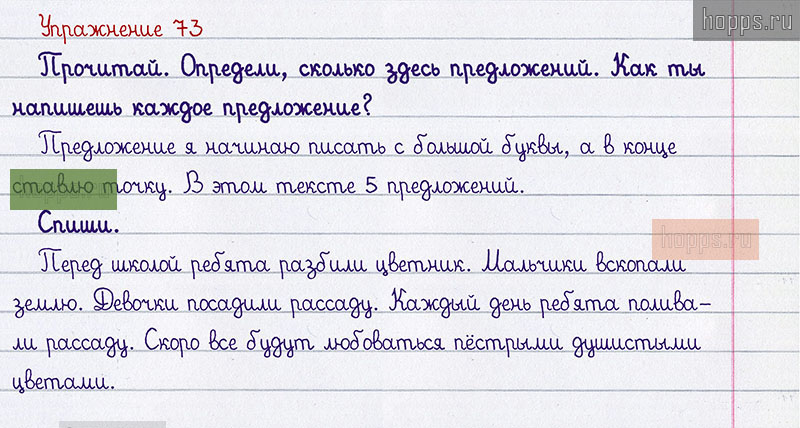 hopps.ru
Упражнение 73
Прочитай. Определи, сколько здесь предложений. Как ты
напишешь каждое предложение?
Предложение я начинаю писать с большой буквы, а в конце
ставлю точку. В этом тексте 5 предложений.
Спиши.
hopps.ru
Перед школой ребята разбили цветник. Мальчики вскопали
землю. Девочки посадили рассаду. Каждый день ребята полива-
ли рассаду. Скоро все будут любоваться пёстрыми душистыми
цветами.